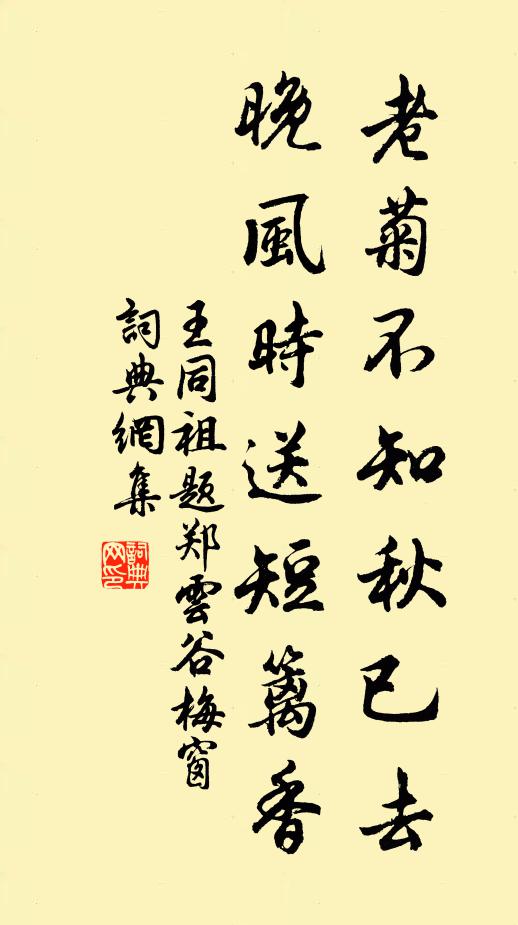 老菊不知秋已去
晚風時送短籬香
王同祖题郑雲谷梅窗
詞典網集
詞典网印